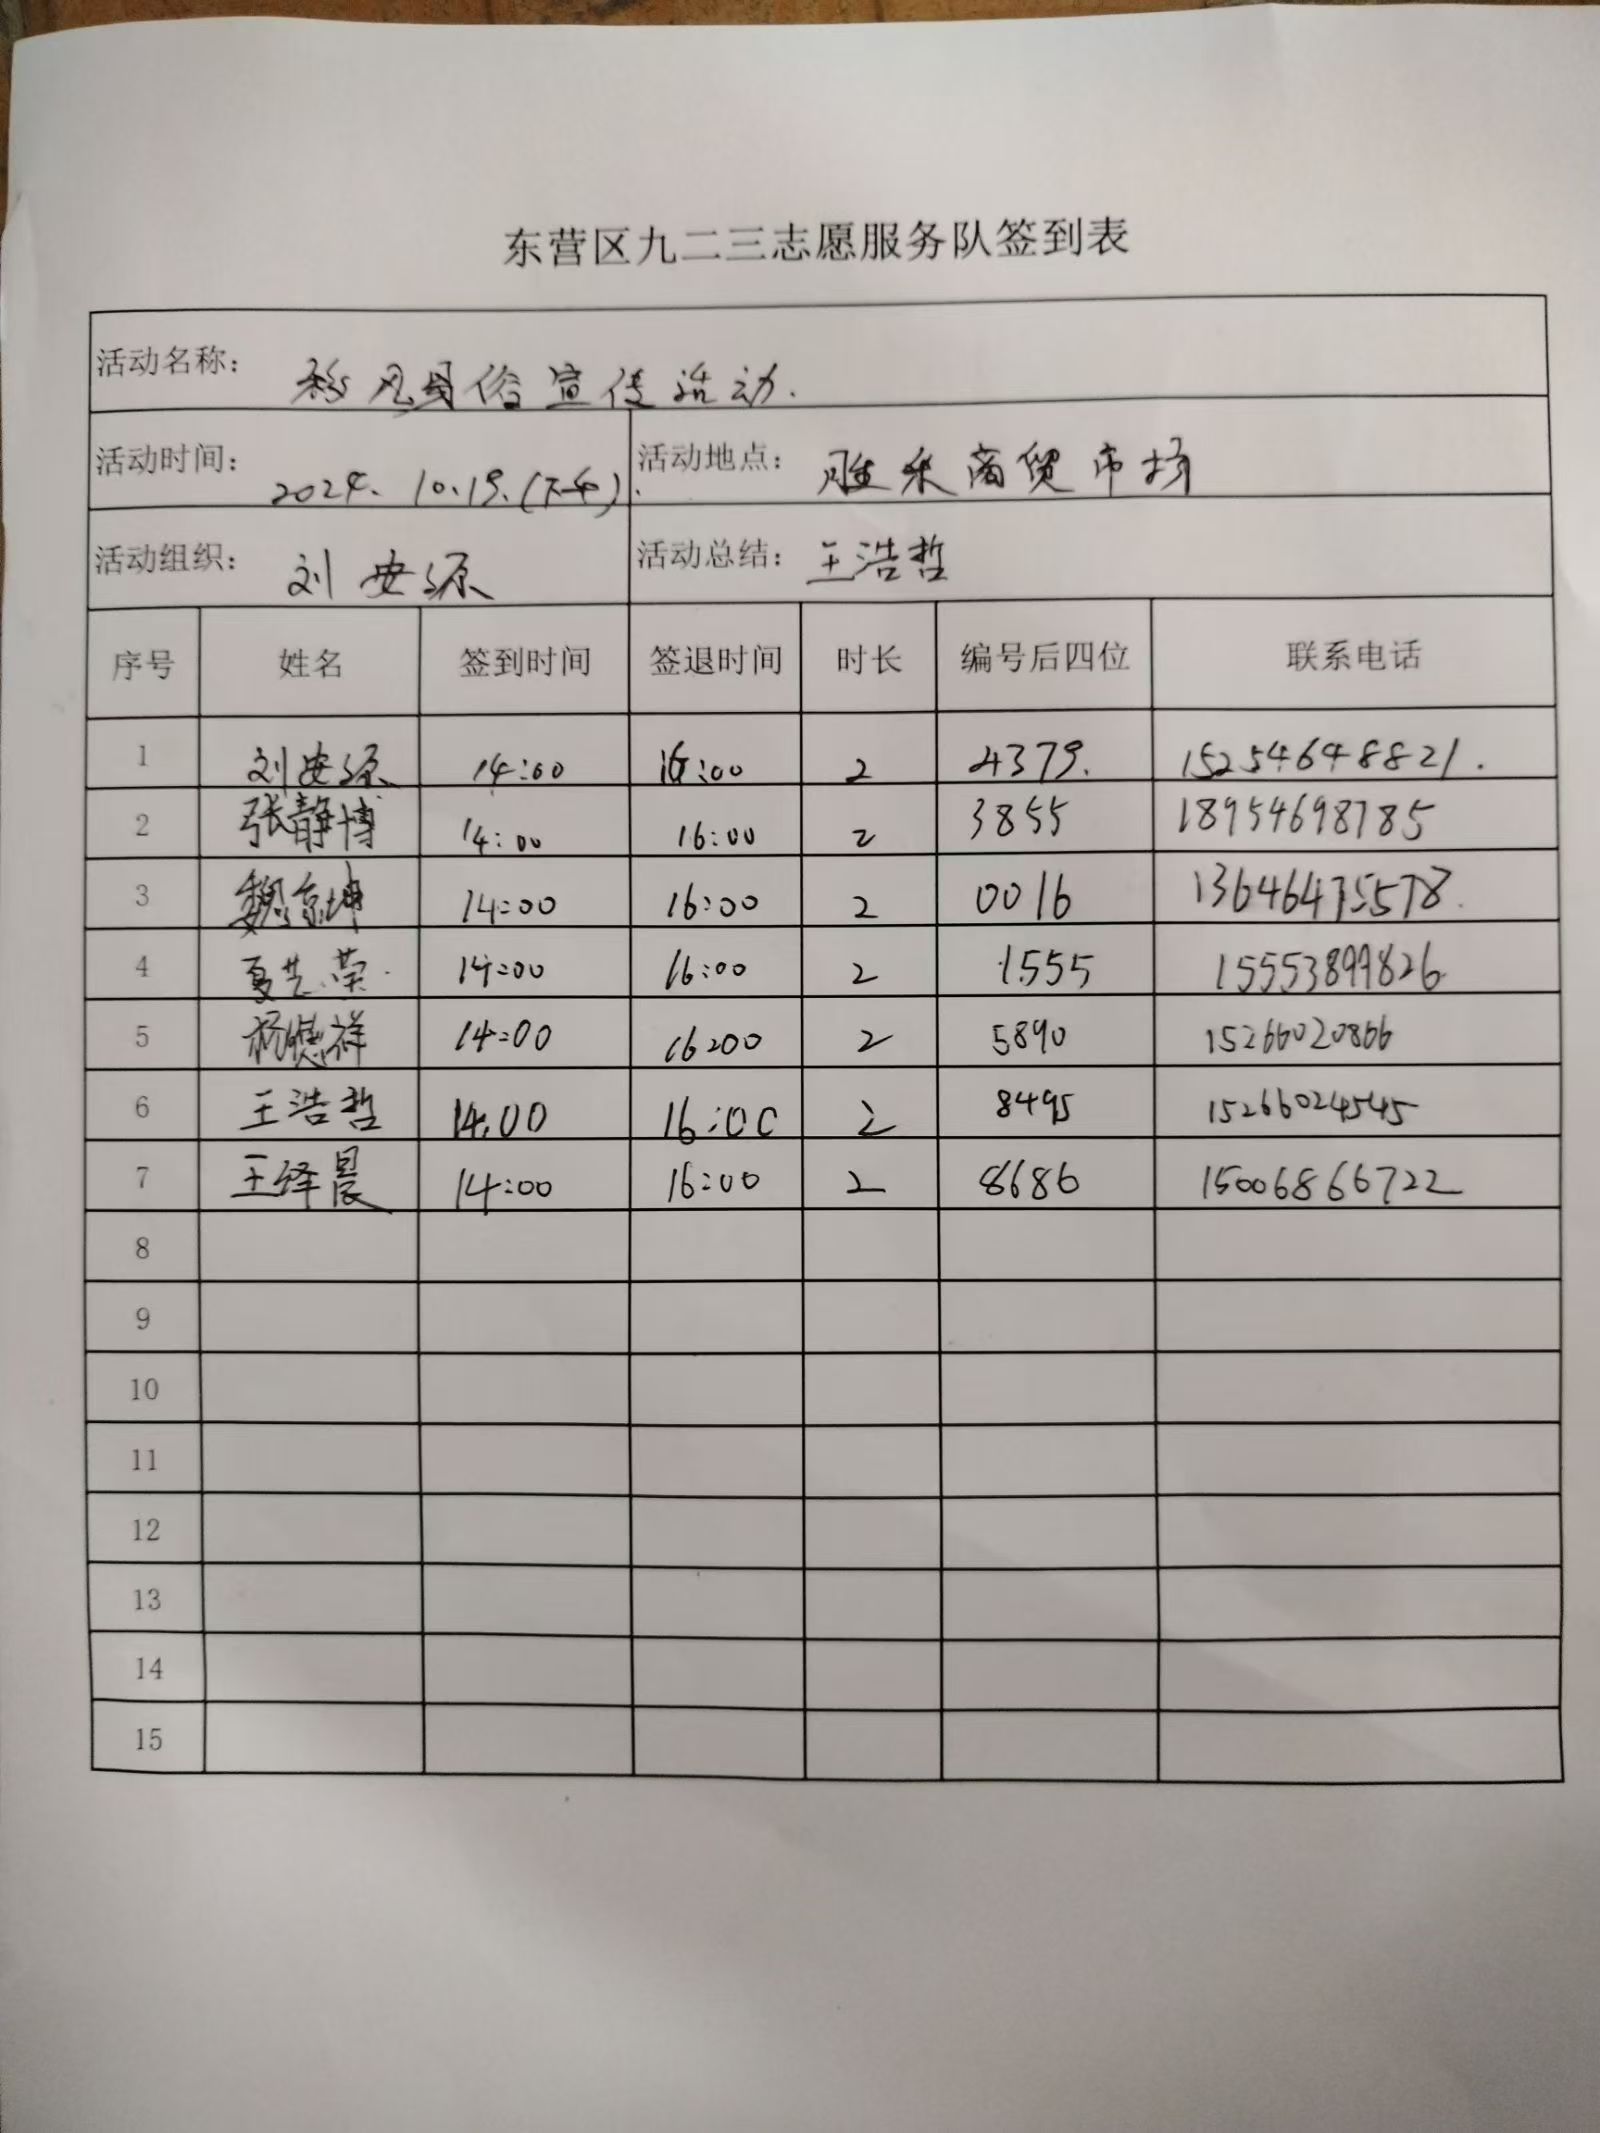 东营区九二三志愿服务队签到表
活动名称： 移风易俗宣传活动.
活动时间： 2024. 10.19.(下午). 活动地点： 胜采商贸市场
活动组织： 刘安源 活动总结： 王浩哲
序号 姓名 签到时间 签退时间 时长 编号后四位 联系电话
1 刘安源 14:00 16:00 2 4379. 15254648821.
2 张静博 14:00 16:00 2 3855 18954698785
3 魏京坤 14:00 16:00 2 0016 13646475578.
4 夏芝荣. 14:00 16:00 2 1555 15553899826
5 杨德祥 14:00 16:00 2 5890 15266020866
6 王浩哲 14:00 16:00 2 8495 15266024545
7 王绎晨 14:00 16:00 2 8686 15006866722
8
9
10
11
12
13
14
15